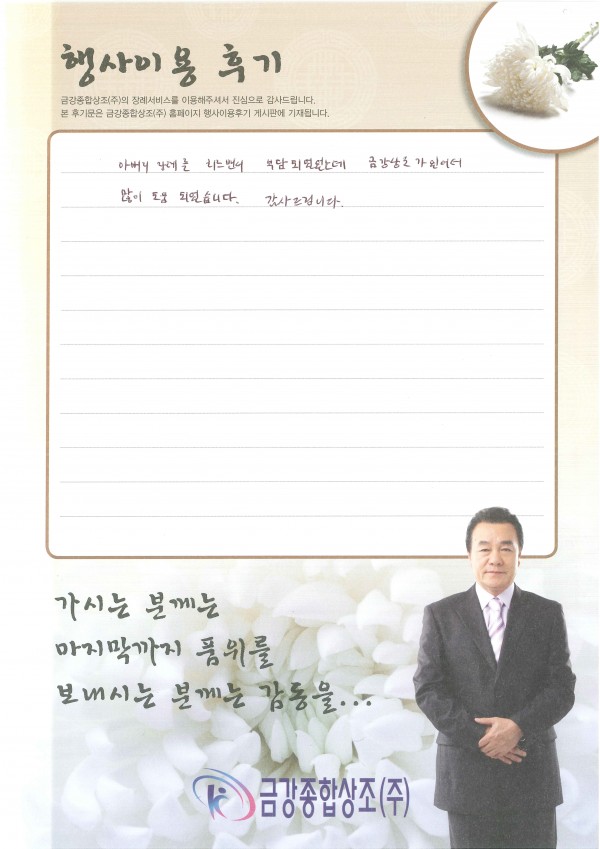 행사이용 후기
금강종합상조(주)의 장례서비스를 이용해주셔서 진심으로 감사드립니다.
본 후기문은 금강종합상조(주) 홈페이지 행사이용후기 게시판에 기재됩니다.
아버지 장례를 치르면서 부담되었었는데 금강상조가 있어서
많이 도움 되었습니다. 감사드립니다.
가시는 분께는
마지막까지 품위를
보내시는 분께는 감동을...
금강종합상조(주)